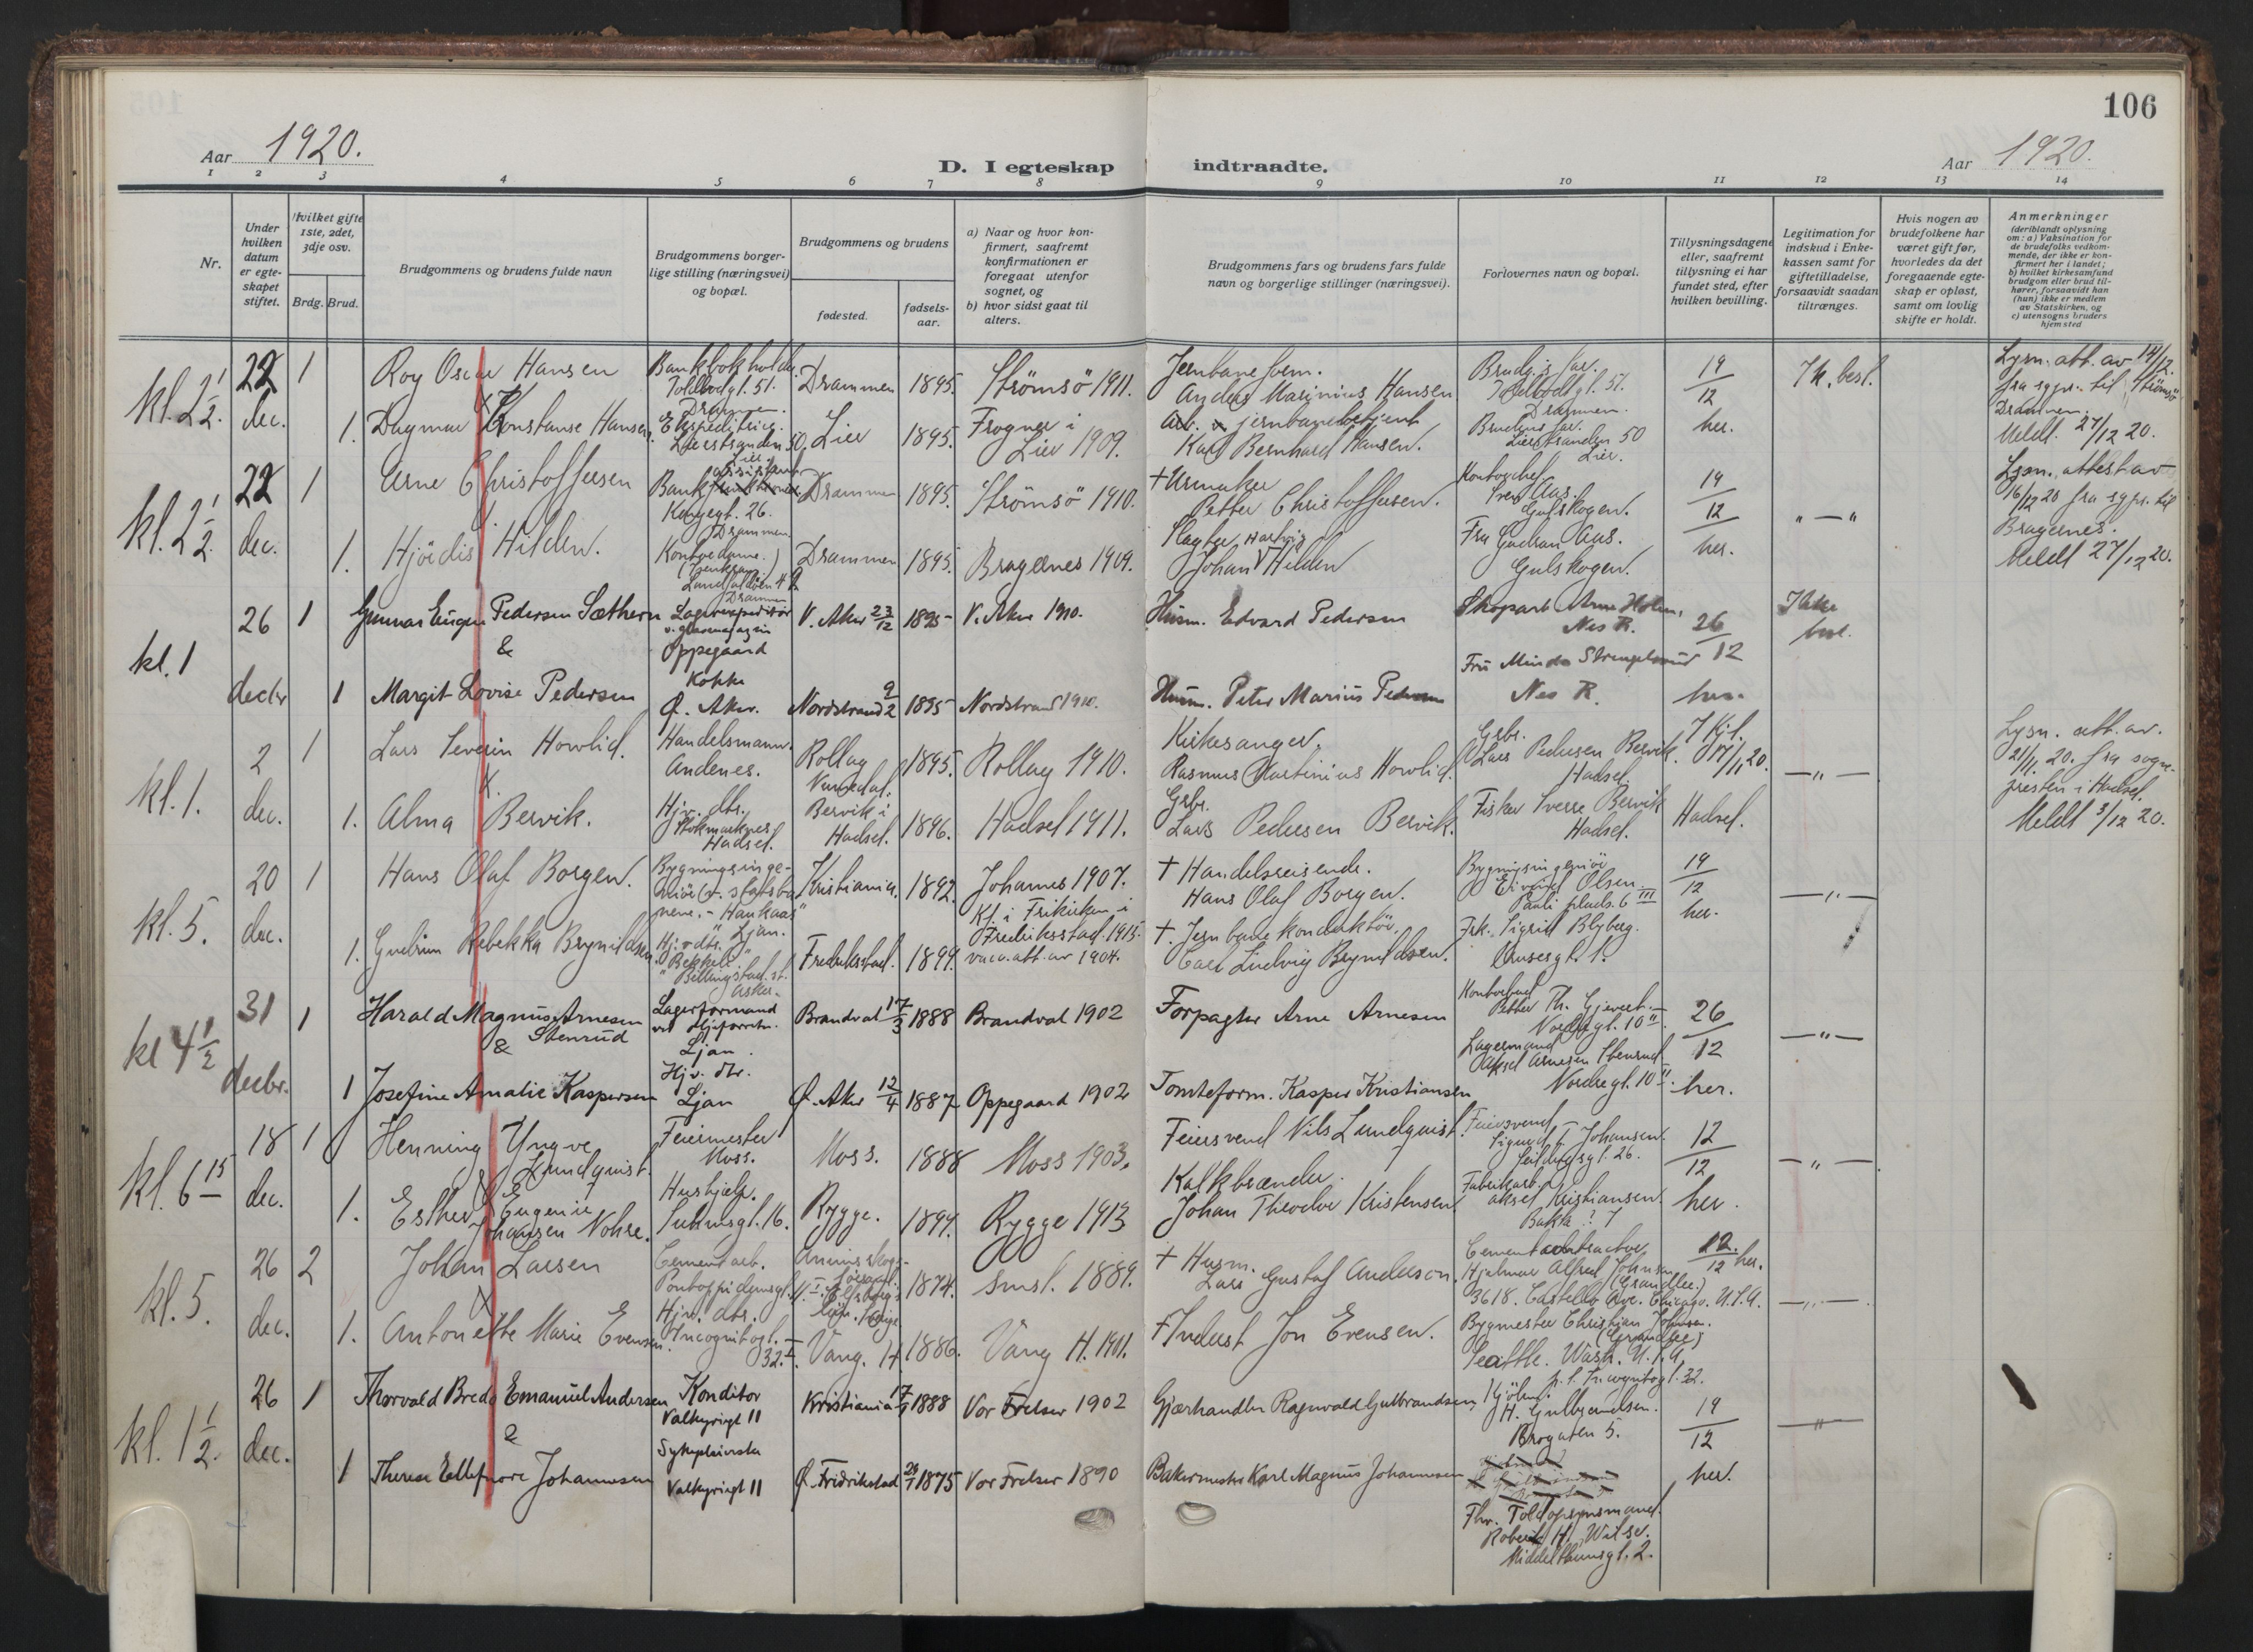 106
Aar 1920.
D. I egteskap indtraadte.
Aar 1920.
1 2 3 4 5 6 7 8 9 10 11 12 13 14
Nr.
Under hvilken datum er egteskapet stiftet.
Hvilket gifte 1ste, 2det, 3dje osv.
Brdg. Brud.
Brudgommens og brudens fulde navn
Brudgommens borgerlige stilling (næringsvei) og bopæl.
Brudgommens og brudens
fødested.
fødselsaar.
a) Naar og hvor konfirmert, saafremt konfirmationen er foregaat utenfor sognet, og
b) hvor sidst gaat til alters.
Brudgommens fars og brudens fars fulde navn og borgerlige stillinger (næringsvei).
Forlovernes navn og bopæl.
Tillysningsdagene eller, saafremt tillysning ei har fundet sted, efter hvilken bevilling.
Legitimation for indskud i Enkekassen samt for giftetilladelse, forsaavidt saadan tiltrænges.
Hvis nogen av brudefolkene har været gift før, hvorledes da det foregaaende egteskap er opløst, samt om lovlig skifte er holdt.
Anmerkninger
(deriblandt oplysning om: a) Vaksination for de brudefolks vedkommende, der ikke er konfirmert her i landet; b) hvilket kirkesamfund brudgom eller brud tilhører, forsaavidt han (hun) ikke er medlem av Statskirken, og c) utensogns bruders hjemsted
kl. 2 1/2. 22 dec. 1 Roy Oscar Hansen Bankbokholder. Toldbodgt. 51. Drammen. Drammen 1895. Strömsö 1911. Jernbaneform. Anders Marinius Hansen Brudg.s far. Toldbodgt. 51. Drammen. 19/12 her. Ik. best. Lysn. att. av 14/12. fra sgpr. til Strömsö Drammen.
1. Dagmar Konstanse Hansen. Ekspeditrice. Lierstranden 50. Lier. Lier 1895. Frogner i Lier 1909. jernbanebetjent Karl Bernhard Hansen. Brudens far. Lierstranden 50 Lier. Meldt. 27/12 20.
kl. 2 1/2. 22 dec. 1 Arne Christoffersen Bankassistent Kongegt. 26. Drammen Drammen 1895. Strömsö 1910. † Urmaker Petter Christoffersen. Kontorchef Sven Aas. Gulskogen. 19/12 her. " — " Lysn. attest av 16/12 20 fra sgpr. til Bragernes.
1. Hjördis Hilden. Kontordame. Drammen Drammen 1895. Bragernes 1909. Slagter Johan Hartvig Hilden Fru Gudrun Aas. Gulskogen. Meldt 27/12 20.
kl. 1 26 decbr 1 Gunnar Eugen Pedersen Sæthern Lagerexpeditör v. glasmagasin Oppegaard V. Aker 23/12 1895 V. Aker 1910. Husm. Edvard Pedersen Skogarb. Arne Holm, Nes R. 26/12 her. Ikke best.
&
1 Margit Lovise Pedersen Kokke Ø. Aker. Nordstrand 9/2 1895 Nordstrand 1910. Husm. Peter Marius Pedersen Nes R.
kl. 1. 2 dec. 1 Lars Severin Howlid. Handelsmann. Andenes. Rollag Numedal. 1895. Rollag 1910. Kirkesanger. Rasmus Martinius Howlid. Grbr. Lars Pedersen Bervik. Hadsel. 7/11 20. Hadsel. —"— Lysn. att. av. 21/11. 20. fra sognepresten i Hadsel.
1. Alma Bervik. Hjv. dtr. Stokmarknes Hadsel. Bervik i Hadsel. 1896. Hadsel 1911. Grbr. Lars Pedersen Bervik. Fisker Sverre Bervik Hadsel. Meldt 3/12 20.
kl. 5. 20 dec. 1 Hans Olaf Borgen. Bygningsingeniör v. statsbanene. "Haukaas" Ljan. Kristiania. 1892. Johannes 1907. † Handelsreisende. Hans Olaf Borgen. Bygningsingeniör Eivind Olsen. Pauli plads. 6 III 19/12 her. —"—
1. Gudrun Rebekka Brynildsen Hjv. dtr. "Bekkeli" Billingstad st. Asker. Fredriksstad. 1899. Kf. i Frikirken i Fredriksstad. 1915. vacc. att. av 1904. †. Jernbanekonduktör. Carl Ludvig Brynildsen. Frk. Sigrid Blyberg.
kl 4 1/2 31 decbr. 1 Harald Magnus Arnesen Stenrud Lagerformand Ljan. Brandval 17/3 1888 Brandval 1902 Forpagter Arne Arnesen Kontorbud Petter Th. Gjevert. Nordregt. 10 II. 26/12 her. —"—
&
1 Josefine Amalie Kaspersen Hjv. dtr. Ljan Ø. Aker 12/4 1887 Oppegaard 1902 Tomteform. Kasper Kristiansen Lagermand Aksel Arnesen Stenrud Nordregt. 10 II.
kl. 6 15 18 dec. 1 Henning Yngve Lundquist. Feiermester Moss. Moss. 1888 Moss 1903. Feiersvend Nils Lundquist. Feiersvend Sigurd Johansen. Seilduksgt. 26. 12/12 her. —"—
1. Esther Eugenie Johansen Nohre. Hushjelp. Suhmsgt. 16. Rygge. 1894. Rygge 1913 Kalkbrænder. Johan Theodor Kristensen. Fabrikarb. Aksel Kristiansen. Bakke
kl. 5. 26 dec. 2 Johan Larsen Cementarb. Pontoppidansgt. 1874. Smst. 1889. † Husm. Lars Gustaf Anderson. Hjalmar Alfred Johnsen (Grandlee.) 3618. Castello Ave. Chicago. U.S.A. 12/12 her. —"—
1. Antonette Marie Evensen. Hjv. dtr. Incognitogt. 32. I. Vang. H 1886. Vang H. 1901. † Inderst Jon Evensen. Bygmester Christian Johnsen. (Grandlee) Seattle. Wash. U.S.A. p. t. Incognitogt. 32.
kl. 1 1/2. 26 dec. 1 Thorvald Bredo Emanuel Andersen Konditor Valkyriegt 11 Kristiania 1888 Vor Frelser 1902 Gjærhandler Ragnvald Gulbrandsen H. Gulbrandsen. Brogaten 5. 19/12 her. —"—
&
1 Therese Ellefnore Johannesen Sykepleierske Valkyriegt 11 Ø. Fredrikstad 1875 Vor Frelser 1890 Bakermester Karl Magnus Johannesen Fhv. Toldopsynsmand. Robert H. Wilse. Middelthunsgt. 2.